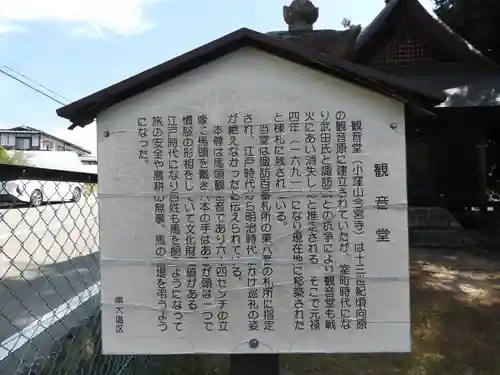 観音堂
観音堂（小窪山今宮寺）は十三世紀頃向原
の観音原に建立されていたが、室町時代にな
り武田氏と諏訪氏との抗争により観音堂も戦
火にあい消失したと推定される。そこで元禄
四年（一六九一）になり現在地に移築された
と棟札に残されている。
当堂は諏訪百番札所の東八番の札所に指定
され、江戸時代から明治時代にかけ巡礼の姿
が絶えなかったと伝えられている。
本尊は馬頭観音であり六十四センチの立
像で馬頭を戴き八本の手はあるが頭は一つで
憤怒の形相をしていて文化財価値がある。
江戸時代になり百姓も馬を飼うようになって
旅の安全や農耕の無事、馬の健堤を弔うよう
になった。
南大塩区